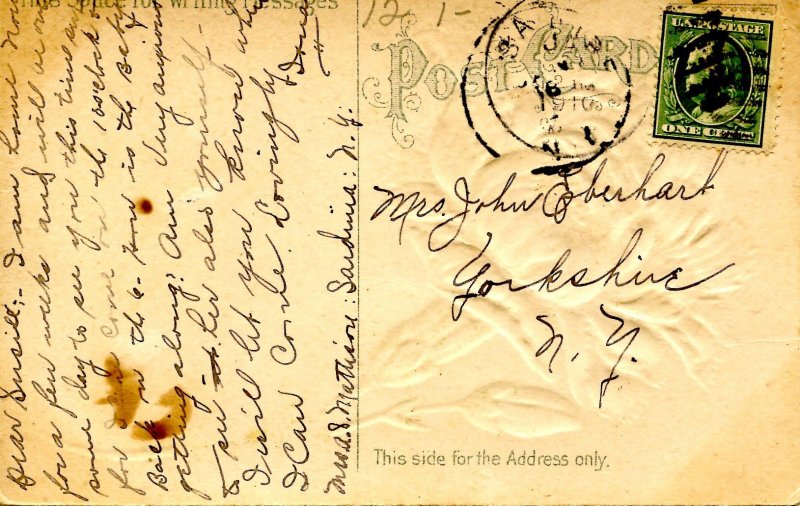 This Space for Writing Messages
Dear Lucile;- I am home now
for a few weeks and will come over
some day to see you this time and
for I may come on the 10 o'clock &
Back on the 6- How is the Baby
getting along? Am very anxious
to see her also yourself-
I will let you know when
I can come Lovingly
Mrs. A. E. Mathison: Sardinia: N.Y.
12 1-
POST CARD
SA
JAN
1910
N.Y.
U.S. POSTAGE
ONE CENT
Mrs. John Eberhart
Yorkshire
N.Y.
This side for the Address only.